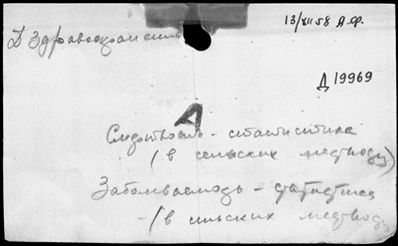 13/XII 58 А.Ф.
Д Здравоохранение
Д 19969
Смертность - статистика
(в сельских местность)
Заболеваемость - статистика
- (в сельских местность